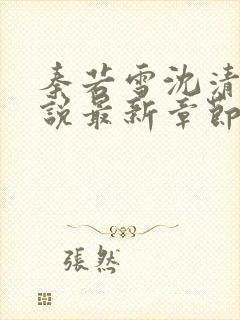 秦若雪沈清
說最新章節
張然